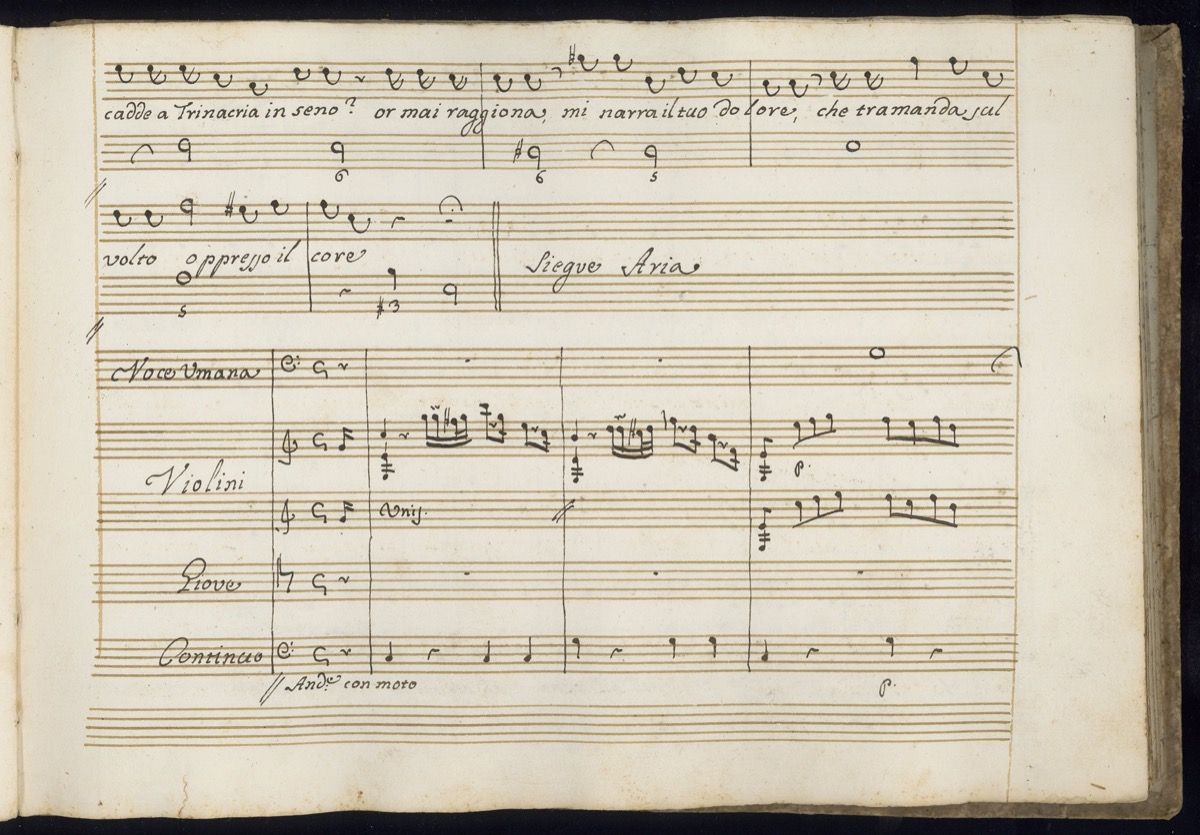 cadde a Trinacria in seno? or mai raggiona, mi narra il tuo dolore, che tramanda sul
6 6 5
volto oppresso il core
Siegue Aria
5 #3
Voce Umana
Violini
p.
Unis.
Giove
Continuo
And.e con moto
p.